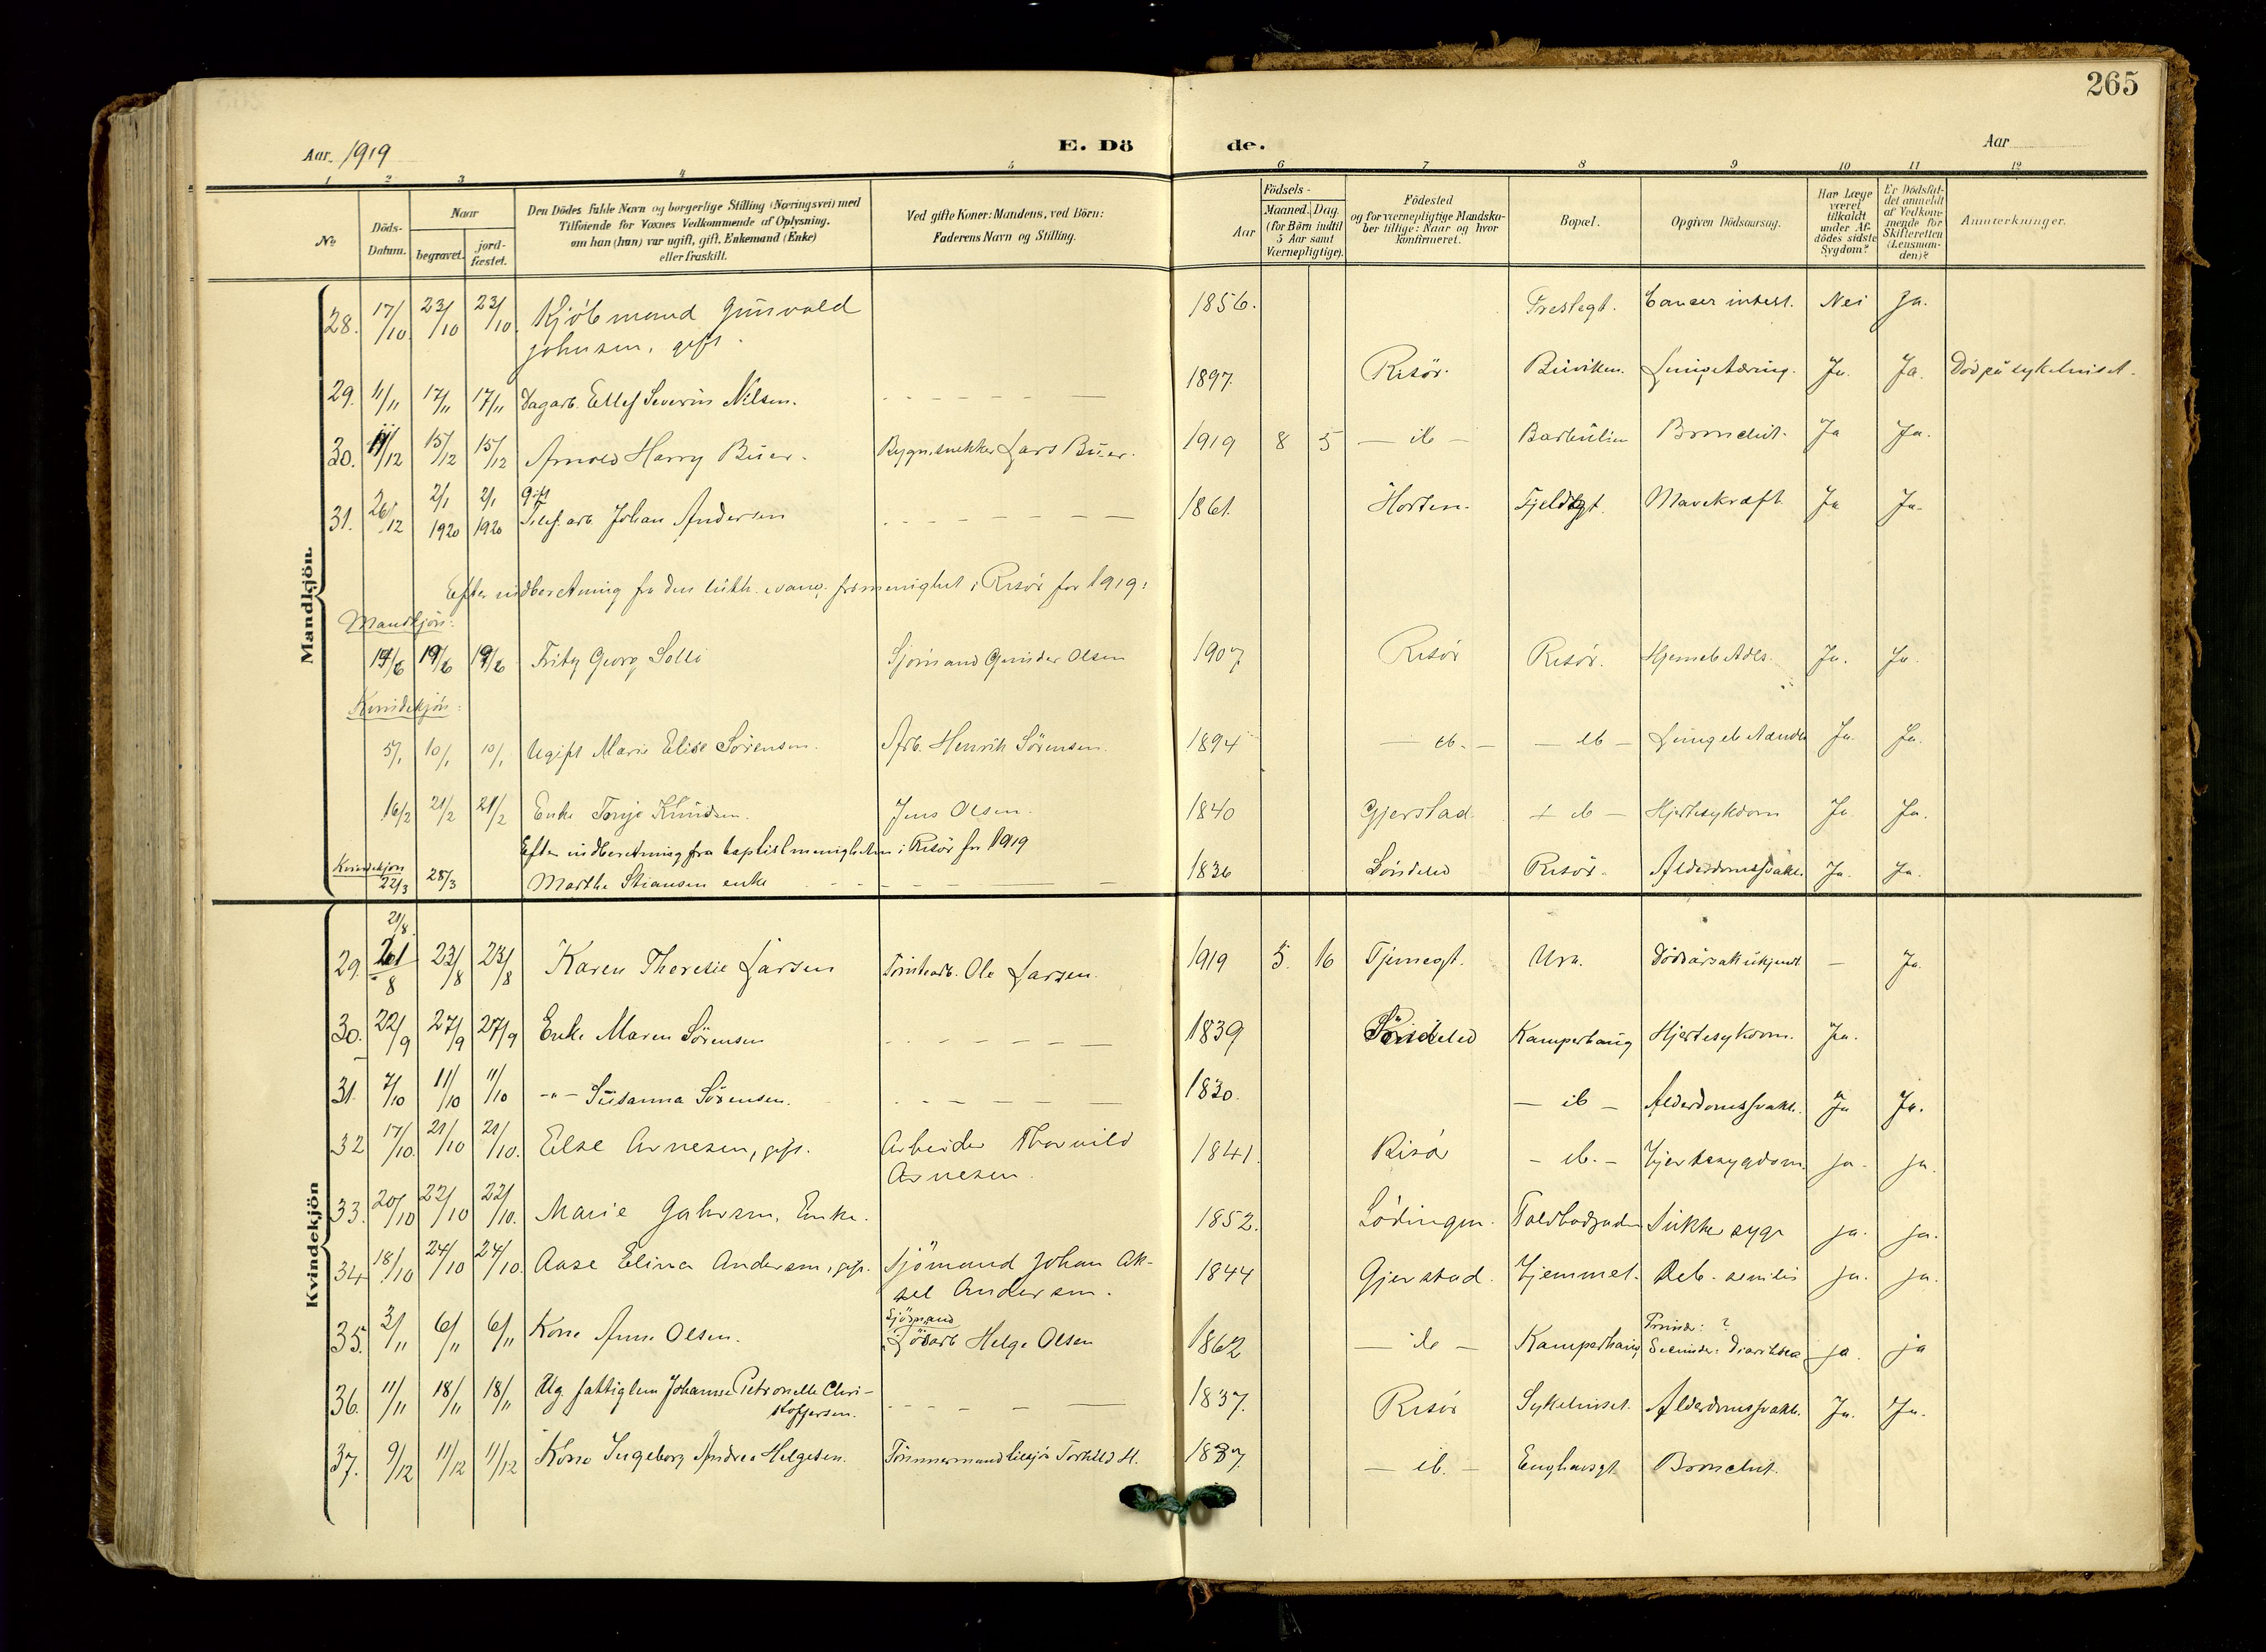 265
Aar 1919
E. Dö de.
Aar
1 2 3 4 5 6 7 8 9 10 11 12
No
Döds-Datum.
Naar
begravet.
jord-fæstet.
Den Dödes fulde Navn og borgerlige Stilling (Næringsvei) med
Tilföiende for Voxnes Vedkommende af Oplysning,
om han (hun) var ugift, gift, Enkemand (Enke)
eller fraskilt.
Ved gifte Koner: Mandens, ved Börn:
Faderens Navn og Stilling.
Födsels-
Aar
Maaned. Dag.
(for Børn indtil
5 Aar samt
Værnepligtige).
Födested
og for værnepligtige Mandska-
ber tillige: Naar og hvor
konfirmeret.
Bopæl.
Opgiven Dödsaarsag.
Har Læge
været
tilkaldt
under Af-
dödes sidste
Sygdom?
Er Dödsfal-
det anmeldt
af Vedkom-
mende for
Skifteretten
(Lensman-
den)?
Anmærkninger.
Mandkjön.
28. 17/10 23/10 23/10 Kjöbmand Gunvald 1856. Prestegt. Cancer intest. Nei Ja.
Johnsen, gift.
29. 11/11 17/11 17/11 Dagarb. Ellef Severin Nilsen. 1897. Risör. Buviken. Lungetæring. Ja. Ja. Död på sykehuset.
30. 11/12 15/12 15/12 Arnold Harry Buer. Bygn.snekker Lars Buer. 1919 8 5 — ib — Barbulien Bronchit. Ja Ja.
31. 26/12 2/1 1920 2/1 1920 Gift
Telef. arb. Johan Andersen 1861. Horten. Fjeldgt. Mavekræft Ja Ja.
Efter indberetning fra den luth. evang. frimenighet i Risör for 1919:
Mandkjön:
14/6 19/6 19/6 Fritz Georg Solli Sjömand Gunder Olsen 1907 Risör Risör. Ja. Ja.
Kvindekjön:
5/1 10/1 10/1 Ugift Marie Elise Sörensen. Arb. Henrik Sörensen. 1894 — ib. — — ib — Ja. Ja.
16/2 21/2 21/2 Enke Tonje Knudsen. Jens Olsen. 1840 Gjerstad. — ib — Hjertesykdom Ja Ja.
Efter indberetning fra baptistmenigheten i Risör for 1919
Kvindekjön
22/3 28/3 Marthe Stiansen enke 1836 Söndeled Risör. Alderdomssvakh. Ja. Ja.
Kvindekjön
21/8
29. 21/8 23/8 23/8 Karen Theresie Larsen Tomtearb. Ole Larsen. 1919 5. 16 Tjennegt. Ura. Dödsårsak ukjendt — Ja.
30. 22/9 27/9 27/9 Enke Maren Sörensen 1839 Söndeled Kamperhaug Hjertesykdom. Ja.
31. 7/10 11/10 11/10 -"- Susanna Sörensen. 1830. — ib — Alderdomssvakh. Ja Ja.
32 17/10 21/10 21/10. Else Arnesen, gift. Arbeider Thorvald 1841. Risör - ib. - Hjertesygdom. ja. ja.
Arnesen.
33. 20/10 22/10 22/10. Marie Gahrsen, Enke. 1852. Lödingen. Toldbodgaden Sukkersyge ja. ja.
34 18/10 24/10 24/10. Aase Elina Andersen, gift. Sjömand Johan Ak- 1844 Gjerstad. Hjemmet. Deb. senilis ja. ja.
sel Andersen.
35. 3/11 6/11 6/11 Kone Anne Olsen. Sjömand
Lösarb Helge Olsen 1862 — ib — Kamperhaug Primær: ?
Secundær: Diarrhea ja. ja
36. 11/11 18/11 18/11 Ug. fattiglem Johanne Petronelle Chri- 1837. Risör Sykehuset. Alderdomssvakh. Ja. Ja.
stoffersen.
37. 9/12 11/12 11/12 Kone Ingeborg Andrea Helgesen. Tömmermand Torkild H. 1837. — ib. — Enghavegt. Bronchit.